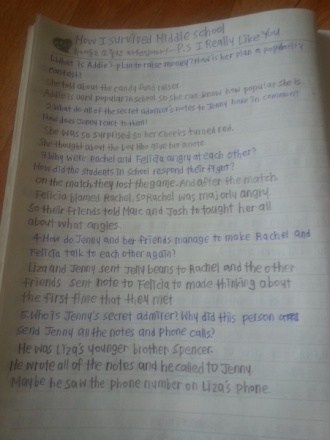 How I Survived Middle School
P.S I Really Like You
1. What is Addie's plan to raise money? How is her plan a popularity
contest?
She told about the candy fund raiser.
Addie is said popular in school so she can know how popular she is.
2. What do all of the secret admirer's notes to Jenny have in common?
How does Jenny react to them?
She was so surprised so her cheeks turned red.
She thought about the boy like also her
3. Why were Rachel and Felicia angry at each other?
How did the students in school respond their fight?
On the match, they lost the game. And after the match
Felicia blamed Rachel, so Rachel was majorly angry.
So their friends told Marc and Josh to tought her all
about what angles.
4. How do Jenny and her friends manage to make Rachel and
Felicia talk to each other again?
Liza and Jenny sent Jelly beans to Rachel and the other
friends sent note to Felicia to made thinking about
the first time that they met
5. Who is Jenny's secret admirer? Why did this person
send Jenny all the notes and phone calls?
He was Liza's younger brother Spencer.
He wrote all of the notes and he called to Jenny.
Maybe he saw the phone number on Liza's phone